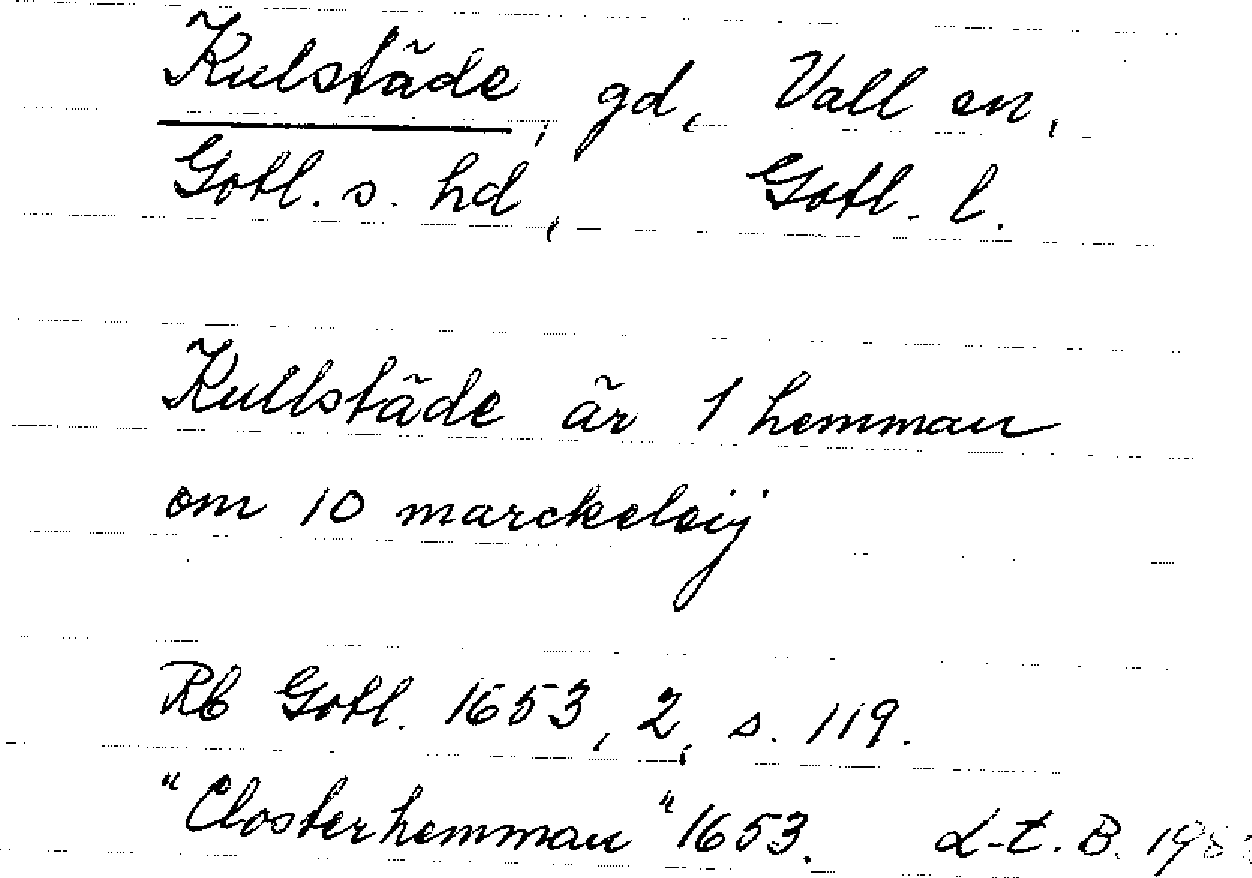 Kulstäde, gd, Vall sn,
Gotl. s. hd, Gotl. l.
Kullstäde är 1 hemman
om 10 marckeleij
Rb Gotl. 1653, 2, s. 119.
"Closterhemman" 1653. L-E. B.